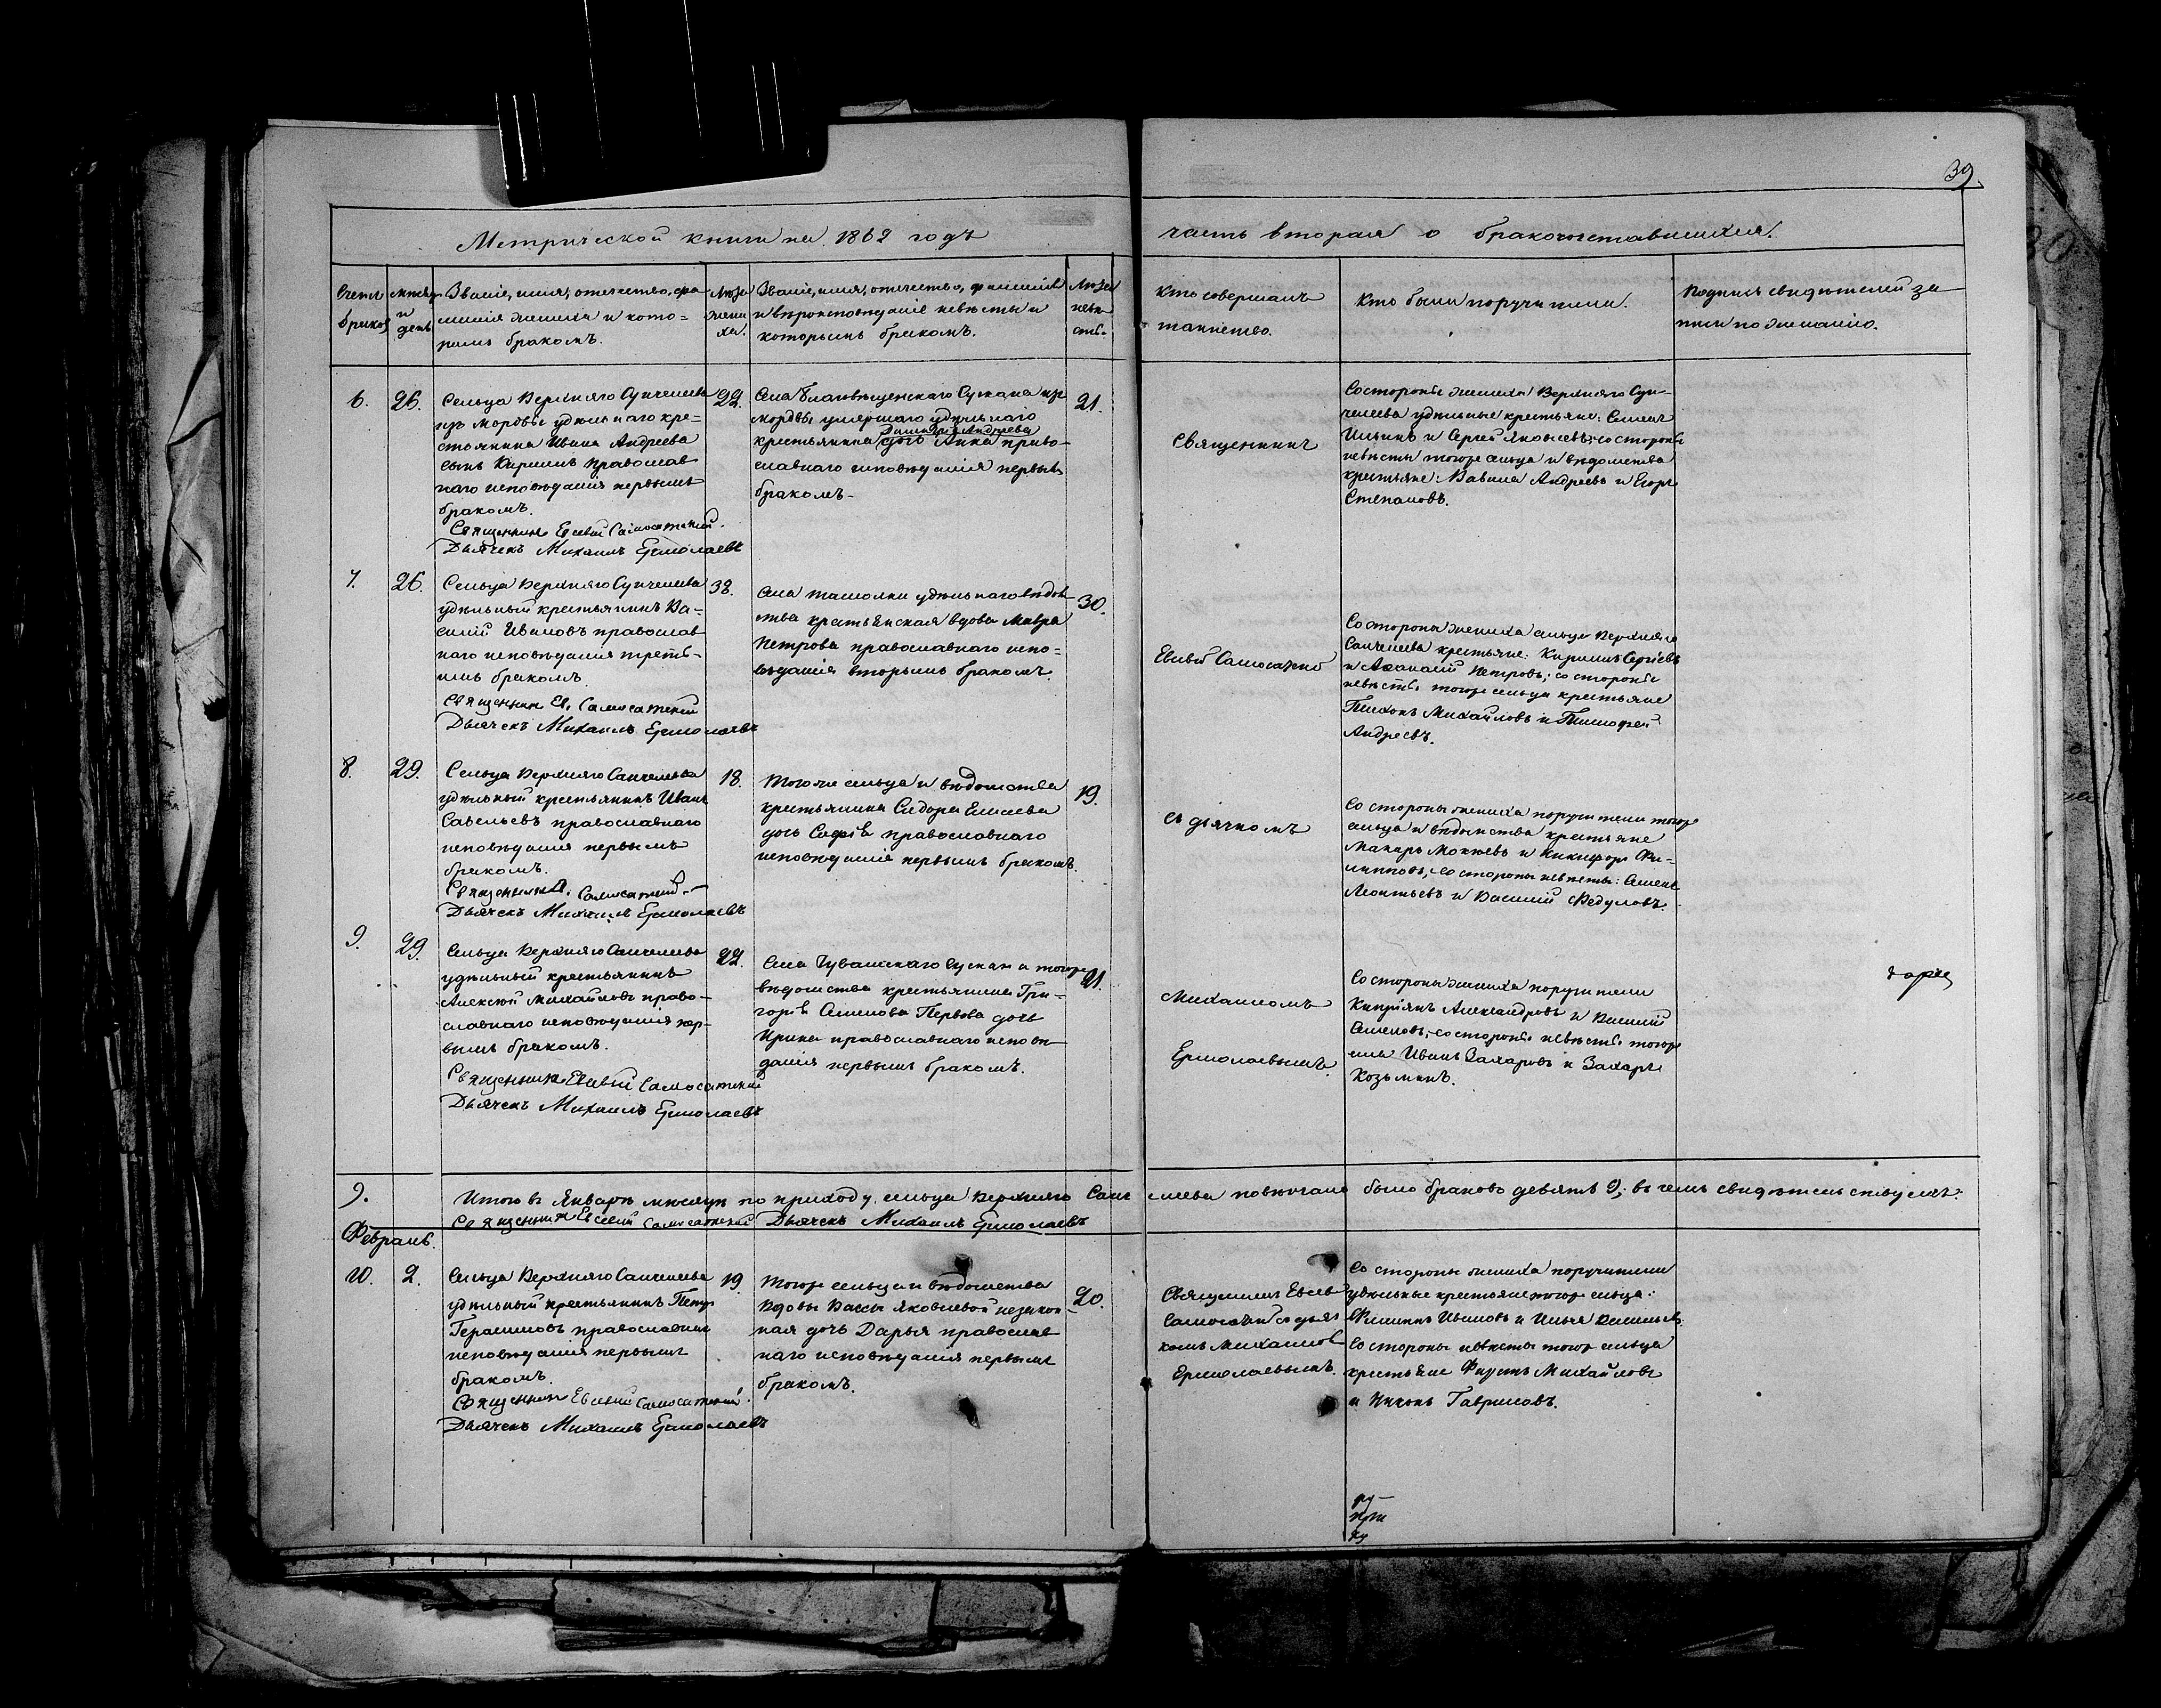 39.
Метрической книги на 1862 годъ
часть вторая о бракосочетавшихся.
Счетъ браков
Месяцъ и день
Званіе, имя, отечество, фа-
милія жениха и кото-
рымъ бракомъ.
Лѣта жени
ха.
Званіе, имя, отечество, фамилія
и вѣроисповѣданіе невѣсты и
которымъ бракомъ.
Лѣта невѣ
сты.
Кто совершалъ
таинство.
Кто были поручители.
Подпись свидѣтелей за
писи по желанію.
6.
26.
Сельца Верхняго Сунчелеева
изъ мордвы удѣльнаго кре-
стьянина Ивана Андреева
сынъ Кирилъ православ
наго исповѣданія первымъ
бракомъ.
Священникъ Евсевій Самосатскій.
Дьячекъ Михаилъ Ермолаевъ
22.
Села Благовѣщенскаго Сускана изъ
мордвы умершаго удѣльнаго
крестьянина Андреева
дочь Анна право-
славнаго исповѣданія первымъ
бракомъ.
21.
Священникъ
Со стороны жениха Верхняго Сун-
челеева удѣльные крестьяне: Семенъ
Ильинъ и Сергей Яковлевъ; со стороны
невѣсты тогоже сельца и вѣдомства
крестьяне: Вавила Андреевъ и Егоръ
Степановъ.
7.
26.
Сельца Верхняго Сунчелеева
удѣльный крестьянинъ Ва-
силій Ивановъ православ
наго исповѣданія треть-
имъ бракомъ.
Священникъ Ев. Самосатскій
Дьячекъ Михаилъ Ермолаевъ
38.
Села Ташолки удѣльнаго вѣдом
ства крестьянская вдова Мавра
Петрова православнаго испо-
вѣданія вторымъ бракомъ.
30.
Евсевій Самосатскій
Со стороны жениха сельца Верхняго
Санчелеева крестьяне: Кирилъ Сергѣевъ
и Афанасій Петровъ; со стороны
невѣсты тогоже сельца крестьяне
Тихонъ Михайловъ и Тимофей
Андреевъ.
8.
29.
Сельца Верхняго Санчелеева
удѣльный крестьянинъ Иванъ
Савельевъ православнаго
исповѣданія первымъ
бракомъ.
Священникъ Самосатскій
Дьячекъ Михаилъ Ермолаевъ
18.
Тогоже сельца и вѣдомства
крестьянина Сидора Елисеева
дочь Софія православнаго
исповѣданія первымъ бракомъ.
19.
съ дьячкомъ
Со стороны жениха поручители тогоже
сельца и вѣдомства крестьяне
Макаръ Мокѣевъ и Никифоръ Фи-
липповъ; со стороны невѣсты: Семенъ
Леонтьевъ и Василій Федуловъ.
9.
29.
Сельца Верхняго Санчелеева
удѣльный крестьянинъ
Алексѣй Михайловъ право-
славнаго исповѣданія пер-
вымъ бракомъ.
Священникъ Евсевій Самосатскій
Дьячекъ Михаилъ Ермолаевъ
22.
Села Чувашскаго Сускана тогоже
вѣдомства крестьянина Гри-
горія Семенова Первова дочь
Ирина православнаго исповѣ-
данія первымъ бракомъ.
21.
Михаиломъ
Ермолаевымъ.
Со стороны жениха поручители
Кипріянъ Александровъ и Василій
Семеновъ; со стороны невѣсты тогоже
села Иванъ Захаровъ и Захаръ
Козьминъ.
9.
Итого въ Январѣ месяцѣ по приходу сельца Верхняго Санч елеева повѣнчано было браковъ девять 9; въ чемъ свидѣтельствуемъ:
Священникъ Евсевій Самосатскій Дьячекъ Михаилъ Ермолаевъ
Февраль.
10.
2.
Сельца Верхняго Санчелеева
удѣльный крестьянинъ Петръ
Герасимовъ православнаго
исповѣданія первымъ
бракомъ.
Священникъ Евсевій Самосатскій.
Дьячекъ Михаилъ Ермолаевъ
19.
Тогоже сельца и вѣдомства
вдовы Вассы Яковлевой незакон
ная дочь Дарья православ
наго исповѣданія первымъ
бракомъ.
20.
Священникъ Евсевій
Самосатскій съ дьяч
комъ Михаиломъ
Ермолаевымъ.
Со стороны жениха поручители
удѣльные крестьяне тогоже сельца:
Филиппъ Ивановъ и Илья Васильевъ.
Со стороны невѣсты тогоже сельца
крестьяне Фаустъ Михайловъ
и Никонъ Гавриловъ.